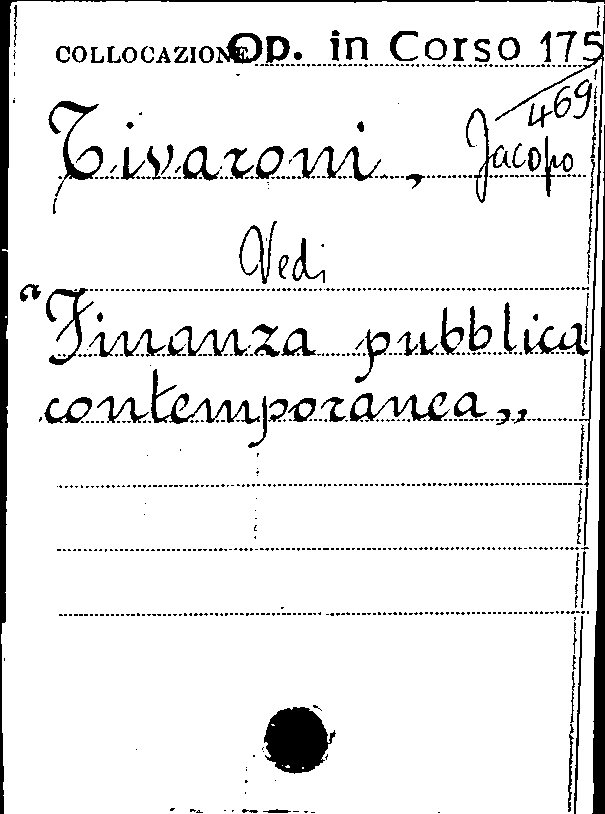 COLLOCAZIONE Op. in Corso 175
469
Tivaroni, Jacopo
Vedi
"Finanza pubblica
contemporanea„